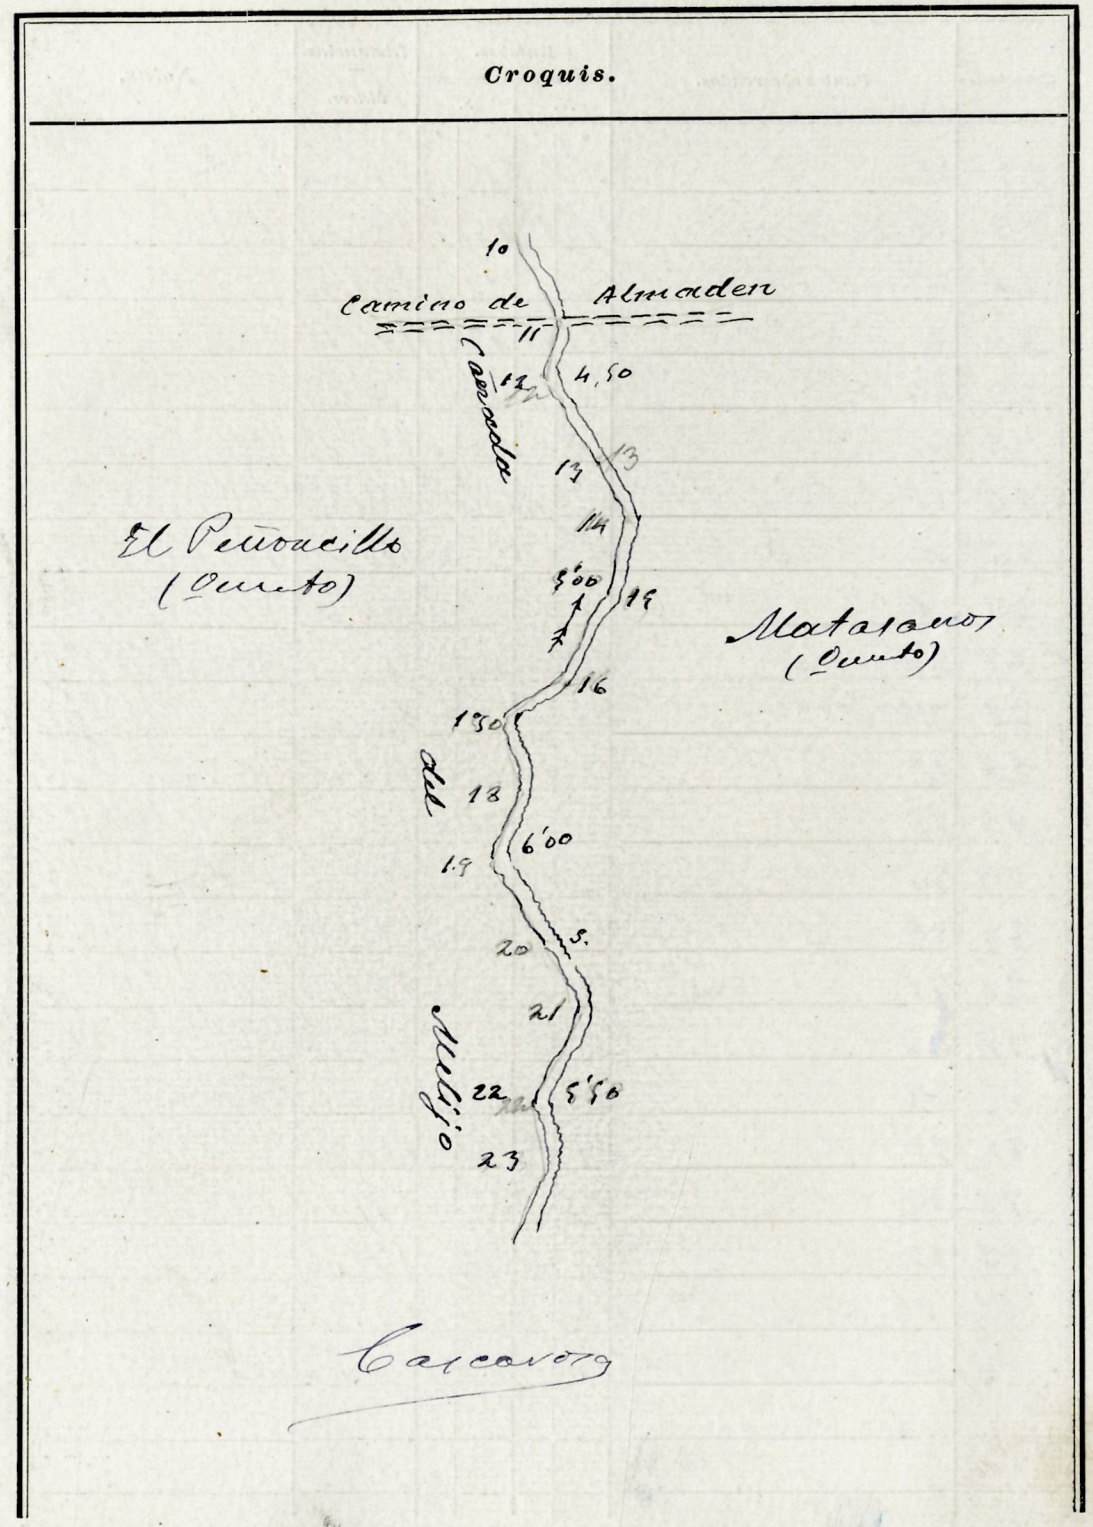 Croquis.
10
Camino de Almaden
11
Cañada
12 4,50
12
13 13
14
El Peñoncillo
(Quinto)
5'00
15
Matasanos
(Quinto)
16
1'50
del
18
6'00
19
20 5.
21
Melijo
22 5'50
22
23